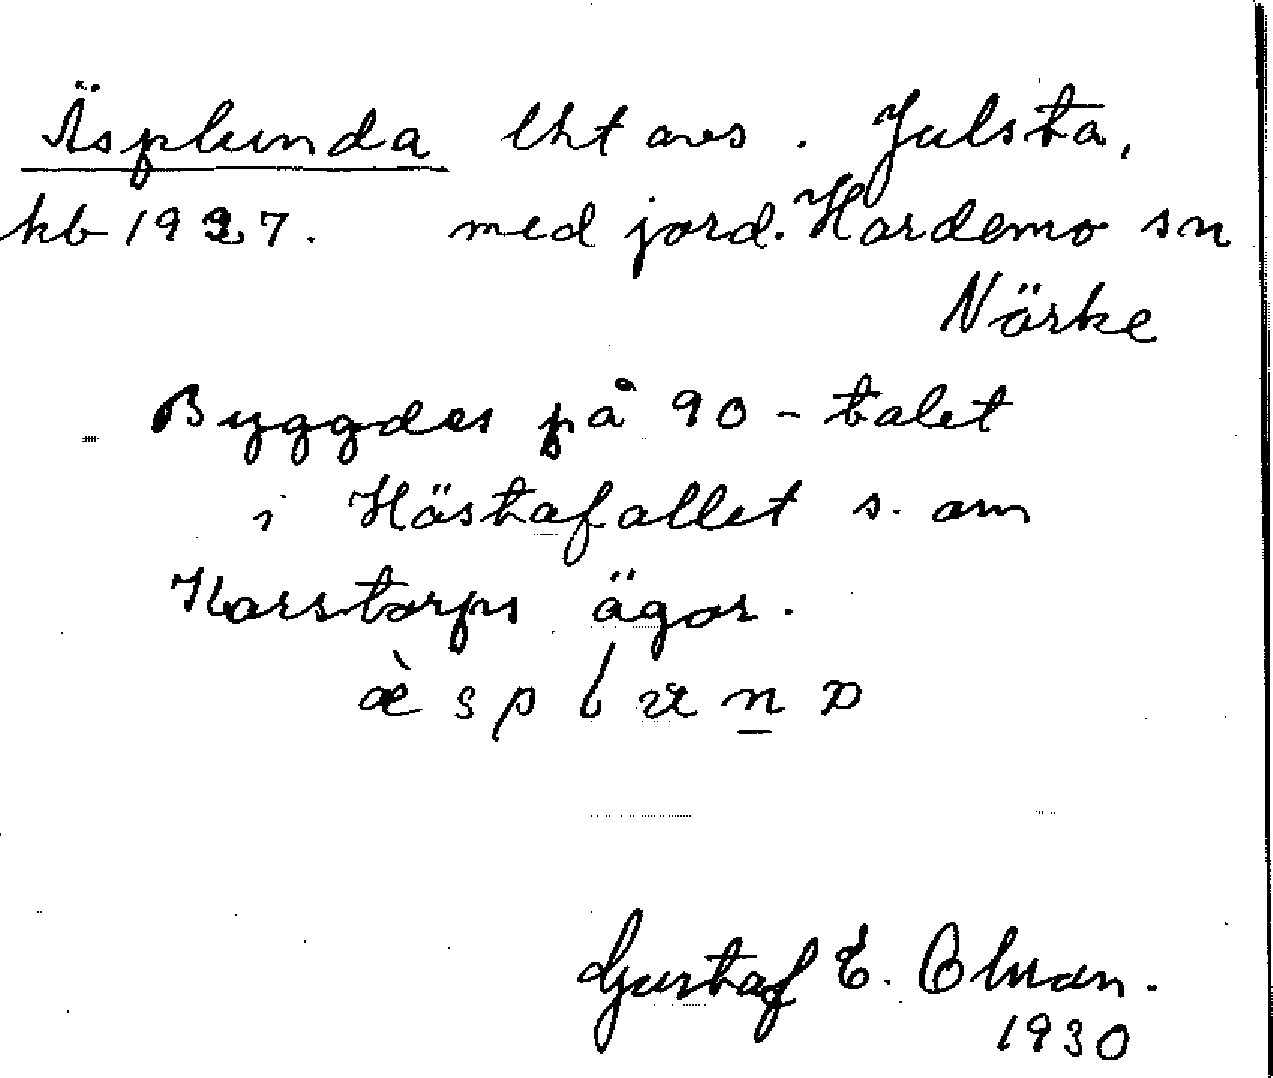 Äsplunda lht avs. Julsta,
kb 1927. med jord. Hardemo sn
Närke
Byggdes på 90-talet
i Hästafallet s. om
Karstorps ägor.
æ̀ s p l u n d
Gustaf E. Olman.
1930